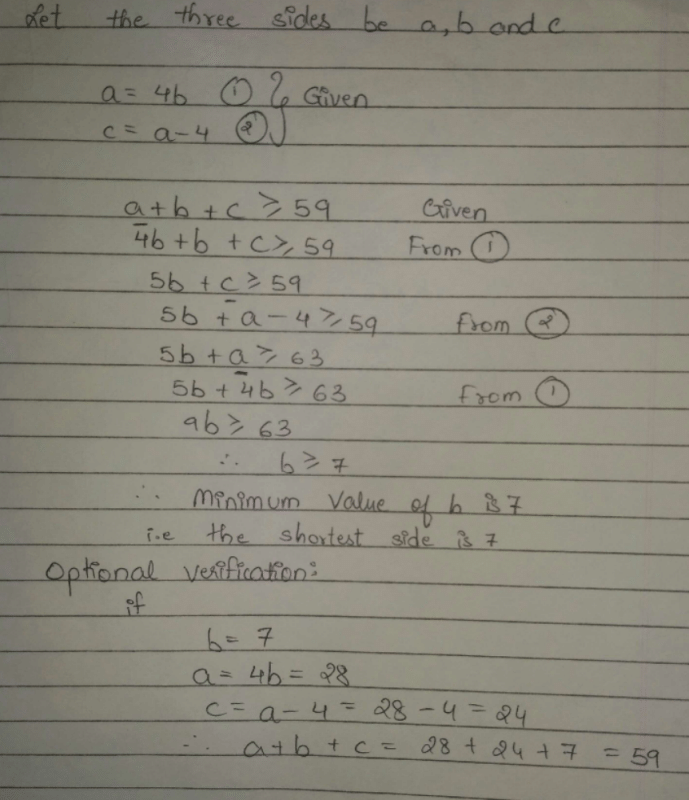 Let the three sides be a, b and c
a = 4b ① } Given
c = a - 4 ②
a + b + c ≥ 59 Given
4b + b + c ≥ 59 From ①
5b + c ≥ 59
5b + a - 4 ≥ 59 From ②
5b + a ≥ 63
5b + 4b ≥ 63 From ①
9b ≥ 63
∴ b ≥ 7
∴ Minimum value of b is 7
i.e the shortest side is 7
Optional verification:
if
b = 7
a = 4b = 28
c = a - 4 = 28 - 4 = 24
∴ a + b + c = 28 + 24 + 7 = 59